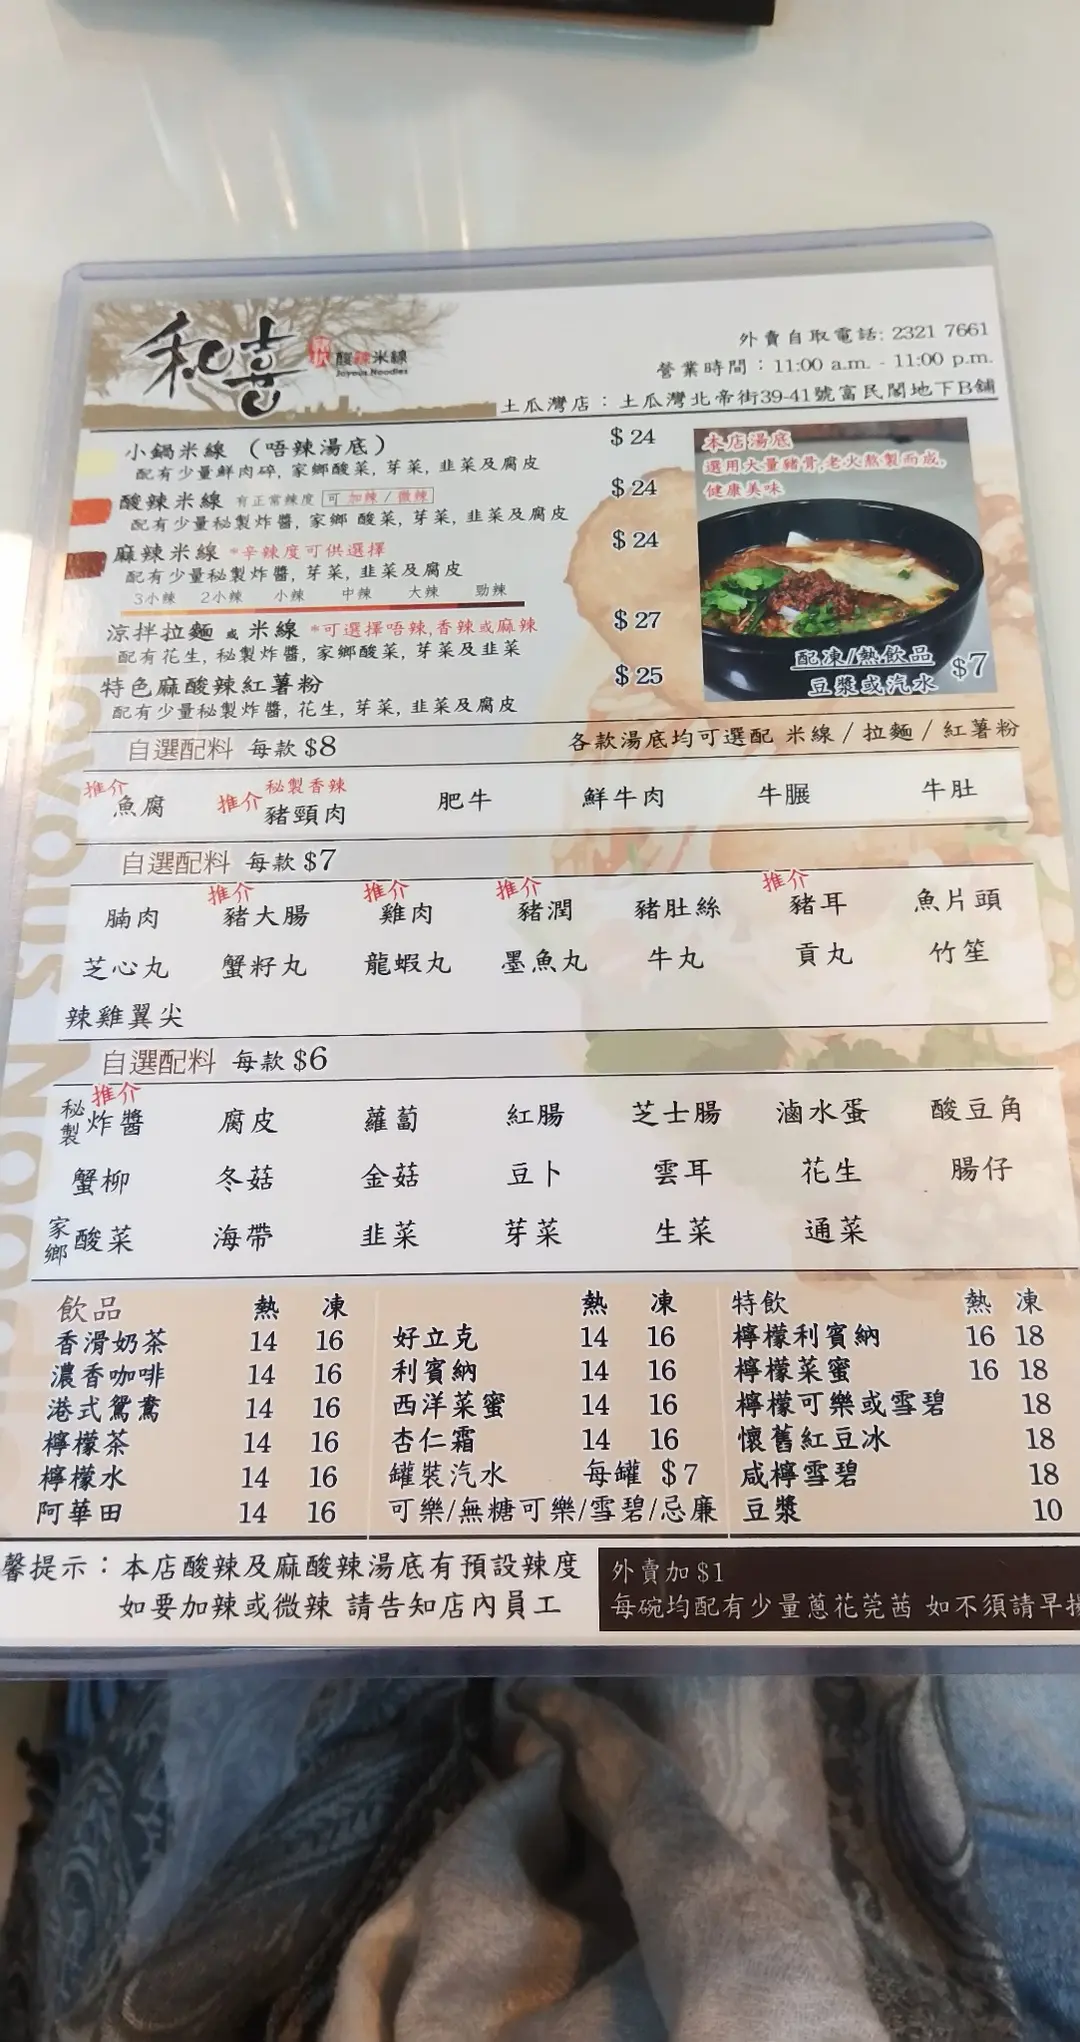 和喜
酸辣米線
Joyous Noodles
外賣自取電話: 2321 7661
營業時間：11:00 a.m. - 11:00 p.m.
土瓜灣店：土瓜灣北帝街39-41號富民閣地下B舖
小鍋米線（唔辣湯底） $24
配有少量鮮肉碎, 家鄉酸菜, 芽菜, 韭菜及腐皮
酸辣米線 有正常辣度 可 加辣 / 微辣 $24
配有少量秘製炸醬, 家鄉 酸菜, 芽菜, 韭菜及腐皮
麻辣米線 *辛辣度可供選擇 $24
配有少量秘製炸醬, 芽菜, 韭菜及腐皮
3小辣 2小辣 小辣 中辣 大辣 勁辣
涼拌拉麵 或 米線 *可選擇唔辣,香辣或麻辣 $27
配有花生, 秘製炸醬, 家鄉酸菜, 芽菜及韭菜
特色麻酸辣紅薯粉 $25
配有少量秘製炸醬, 花生, 芽菜, 韭菜及腐皮
本店湯底
選用大量豬骨,老火熬製而成,
健康美味
配凍/熱飲品
豆漿或汽水 $7
自選配料 每款 $8 各款湯底均可選配 米線 / 拉麵 / 紅薯粉
推介 魚腐 推介 秘製香辣 豬頸肉 肥牛 鮮牛肉 牛𦟌 牛肚
自選配料 每款 $7
腩肉 推介 豬大腸 推介 雞肉 推介 豬潤 豬肚絲 推介 豬耳 魚片頭
芝心丸 蟹籽丸 龍蝦丸 墨魚丸 牛丸 貢丸 竹笙
辣雞翼尖
自選配料 每款 $6
推介 秘製炸醬 腐皮 蘿蔔 紅腸 芝士腸 滷水蛋 酸豆角
蟹柳 冬菇 金菇 豆卜 雲耳 花生 腸仔
家鄉酸菜 海帶 韭菜 芽菜 生菜 通菜
飲品 熱 凍
香滑奶茶 14 16
濃香咖啡 14 16
港式鴛鴦 14 16
檸檬茶 14 16
檸檬水 14 16
阿華田 14 16
熱 凍
好立克 14 16
利賓納 14 16
西洋菜蜜 14 16
杏仁霜 14 16
罐裝汽水 每罐 $7
可樂/無糖可樂/雪碧/忌廉
特飲 熱 凍
檸檬利賓納 16 18
檸檬菜蜜 16 18
檸檬可樂或雪碧 18
懷舊紅豆冰 18
咸檸雪碧 18
豆漿 10
馨提示：本店酸辣及麻酸辣湯底有預設辣度
如要加辣或微辣 請告知店內員工
外賣加$1
每碗均配有少量蔥花芫茜 如不須請早